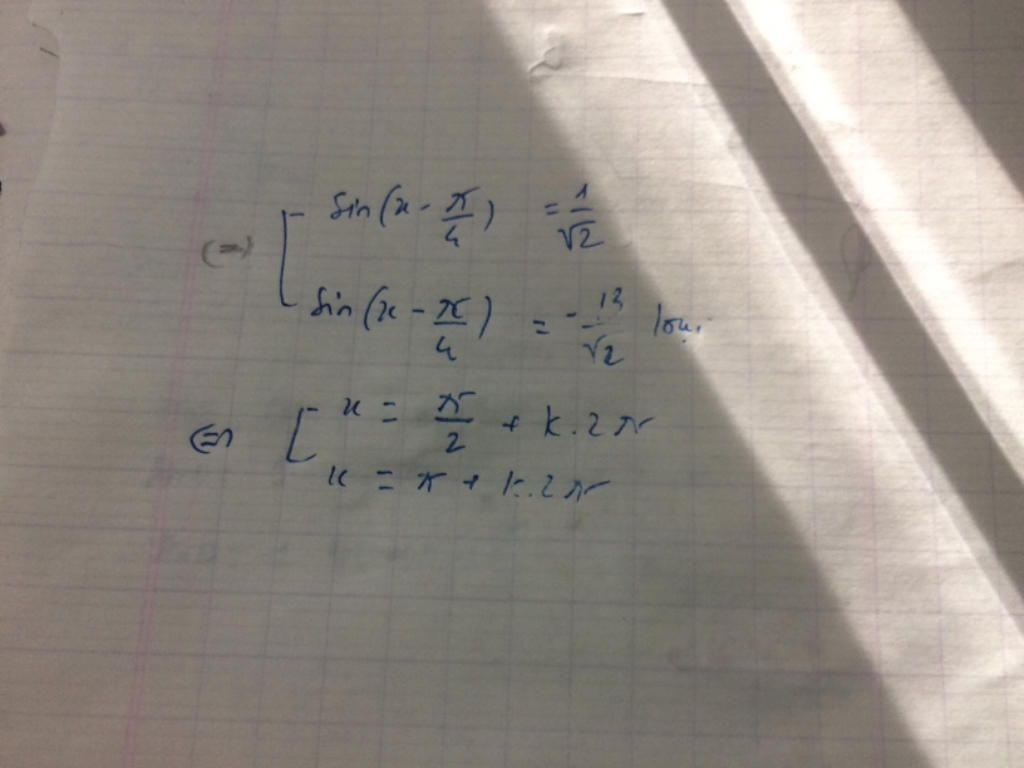 (=) [ sin(x - π/4) = 1/√2
sin(x - π/4) = -13/√2 loại
<=> [ x = π/2 + k.2π
x = π + k.2π